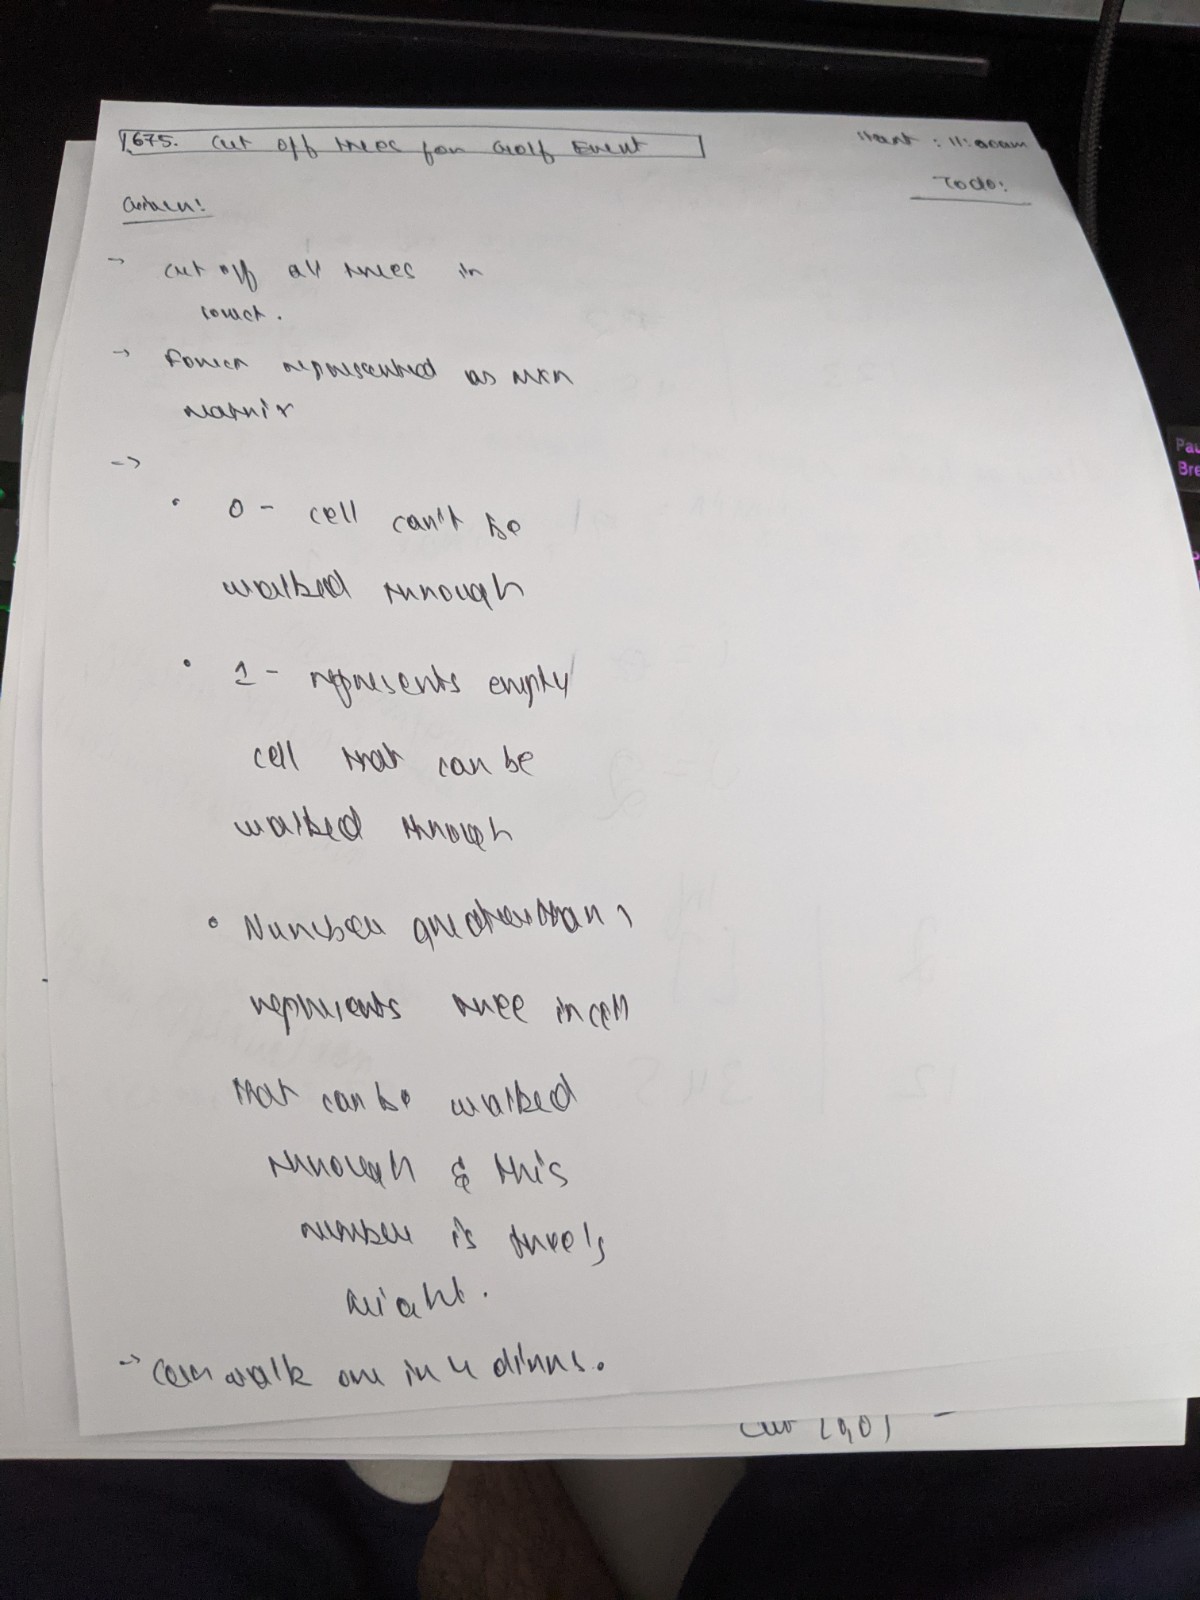 675. Cut off trees for Golf Event
start : 11:00am
Todo:
Given:
-> cut off all trees in
forest.
-> Forest represented as mxn
matrix
->
• 0 - cell can't be
walked through
• 1 - represents empty
cell that can be
walked through
• Number greater than 1
represents tree in cell
that can be walked
through & this
number is tree's
height.
-> Can walk one in 4 dirnns.
cut (0,0) -
Pau
Bre